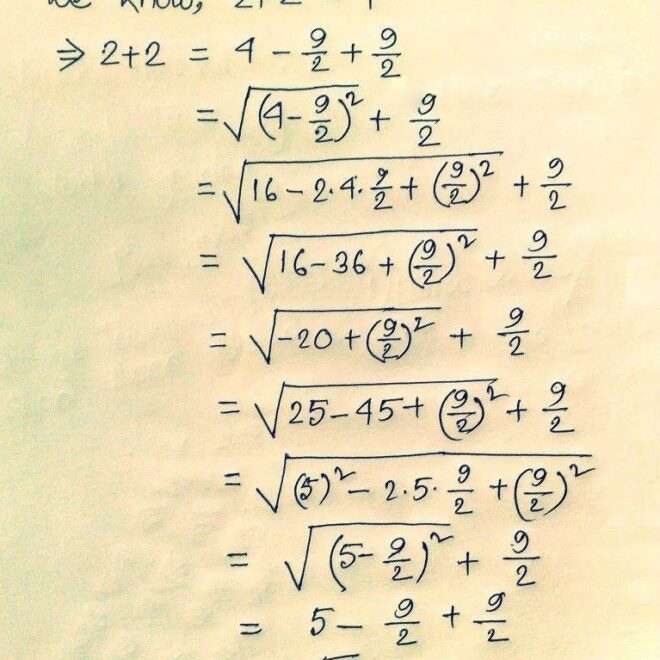 we know, 2+2 = 4
⇒ 2+2 = 4 - 9/2 + 9/2
= √((4 - 9/2)²) + 9/2
= √(16 - 2·4·9/2 + (9/2)²) + 9/2
= √(16 - 36 + (9/2)²) + 9/2
= √(-20 + (9/2)²) + 9/2
= √(25 - 45 + (9/2)²) + 9/2
= √((5)² - 2·5·9/2 + (9/2)²)
= √((5 - 9/2)²) + 9/2
= 5 - 9/2 + 9/2